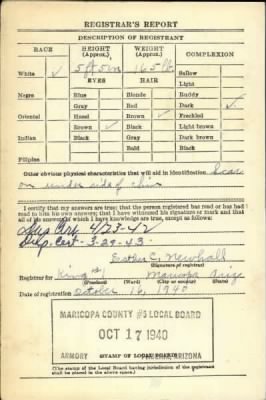 REGISTRAR'S REPORT
DESCRIPTION OF REGISTRANT
RACE HEIGHT (Approx.) WEIGHT (Approx.) COMPLEXION
White ✓ 5 ft 5 in 165 lb Sallow
EYES HAIR Light
Negro Blue Blonde Ruddy
Gray Red Dark ✓
Oriental Hazel Brown ✓ Freckled
Brown ✓ Black Light brown
Indian Black Gray Dark brown
Bald Black
Filipino
Other obvious physical characteristics that will aid in identification Scar
on under side of chin
I certify that my answers are true; that the person registered has read or has had
read to him his own answers; that I have witnessed his signature or mark and that
all of his answers of which I have knowledge are true, except as follows:
4/23-42
3-29-43
Esther C. Newhall
(Signature of registrar)
Registrar for King #1 Maricopa Ariz
(Precinct) (Ward) (City or county) (State)
Date of registration October 16, 1940
MARICOPA COUNTY #5 LOCAL BOARD
OCT 17 1940
ARMORY PHOENIX, ARIZONA
(STAMP OF LOCAL BOARD)
(The stamp of the Local Board having jurisdiction of the registrant
shall be placed in the above space.)